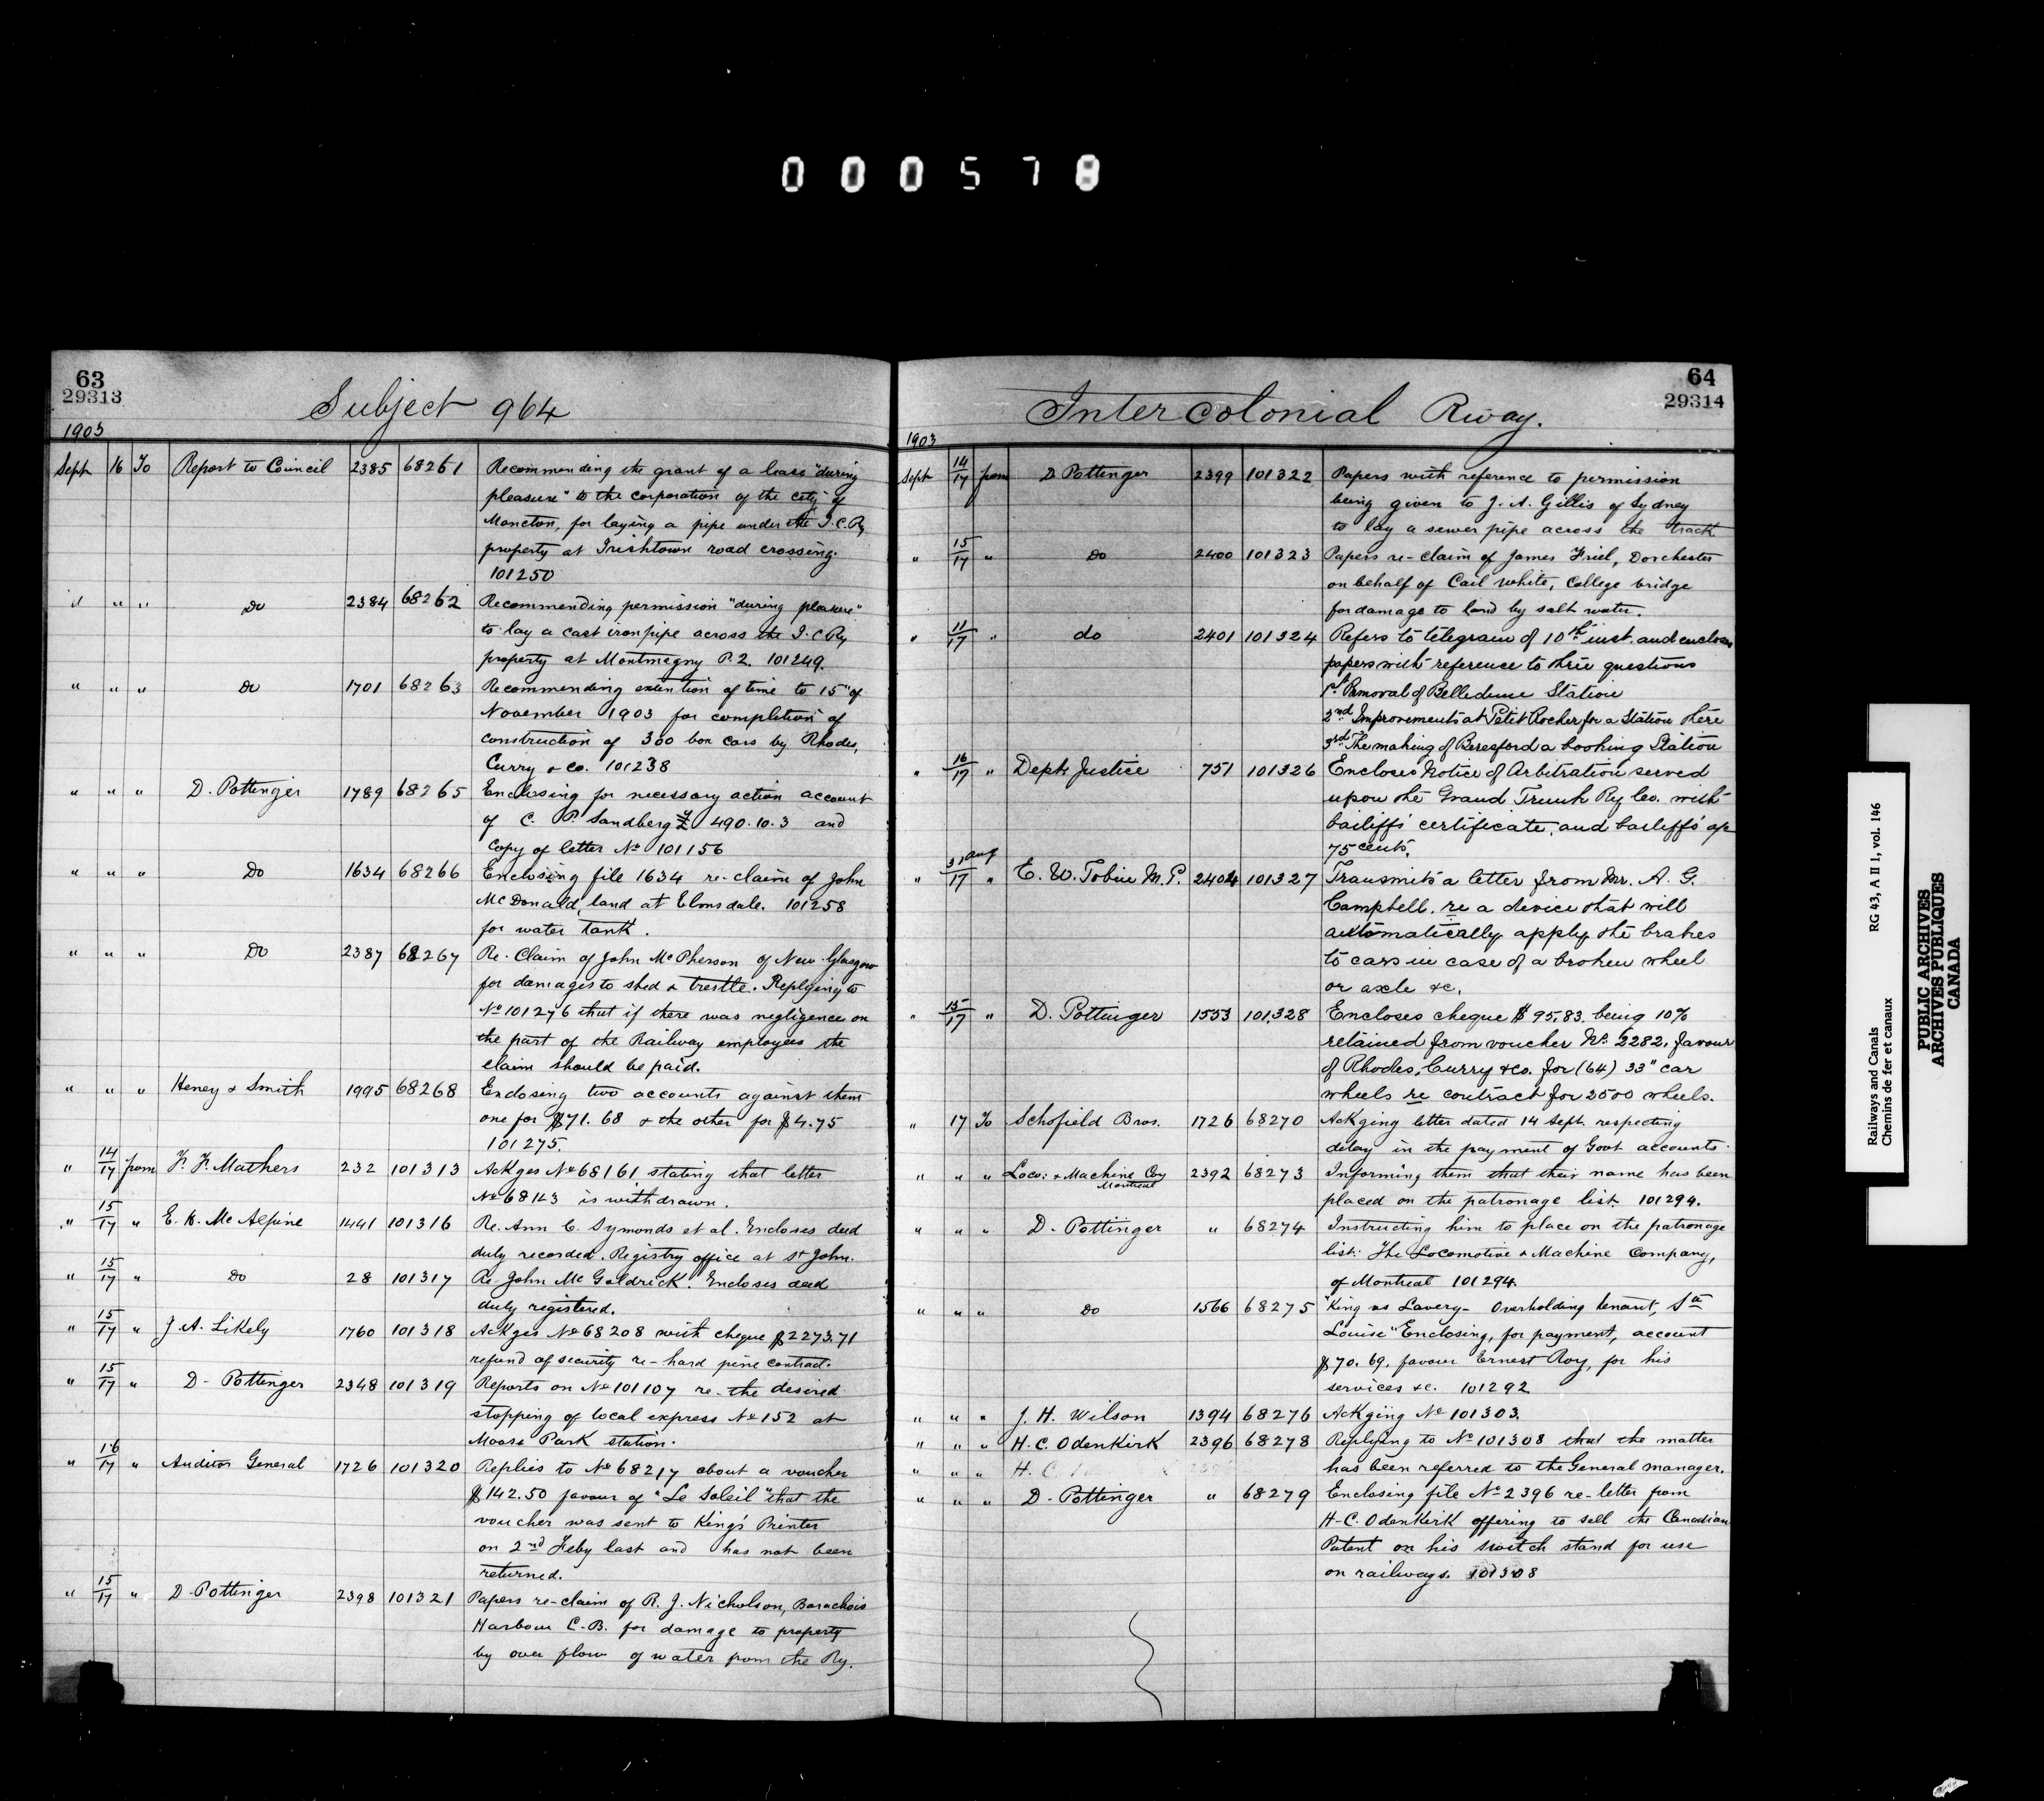 000578
63
29313
Subject 964
1903
Sept 16 To Report to Council 2385 68261 Recommending the grant of a lease "during
pleasure" to the corporation of the city of
Moncton, for laying a pipe under the I.C.Ry
property at Irishtown road crossing.
101250
" " " Do 2384 68262 Recommending permission "during pleasure"
to lay a cast iron pipe across the I.C Ry
property at Montmagny P.2. 101249.
" " " Do 1701 68263 Recommending extention of time to 15" of
November 1903 for completion of
construction of 300 box cars by Rhodes,
Curry & Co. 101238
" " " D. Pottinger 1789 68265 Enclosing for necessary action account
of C. P. Sandberg £ 490.10.3 and
Copy of letter No 101156
" " " Do 1634 68266 Enclosing file 1634 re-claim of John
McDonald, land at Elmsdale. 101258
for water tank.
" " " Do 2387 68267 Re. Claim of John McPherson of New-Glasgow
for damages to shed & trestle. Replying to
No 101276 that if there was negligence on
the part of the Railway employees the
claim should be paid.
" " " Heney & Smith 1995 68268 Enclosing two accounts against them
one for $71.68 & the other for $4.75
101275.
" 14/17 from F. F. Mathers 232 101313 Ackges No 68161 stating that letter
No 68143 is withdrawn.
" 15/17 " E. H. McAlpine 1441 101316 Re. Ann C. Symonds et al. Encloses deed
duly recorded. Registry office at St John.
" 15/17 " Do 28 101317 Re. John McGoldrick. Encloses deed
duly registered.
" 15/17 " J. A. Likely 1760 101318 Ackges No 68208 with cheque $2273.71
refund of security re-hard pine contract.
" 15/17 " D. Pottinger 2348 101319 Reports on No 101107 re-the desired
stopping of local express No 152 at
Moose Park station.
" 16/17 " Auditor General 1726 101320 Replies to No 68217 about a voucher
$142.50 favour of "Le Soleil" that the
voucher was sent to King's Printer
on 2nd Feby last and has not been
returned.
" 15/17 " D. Pottinger 2398 101321 Papers re-claim of R. J. Nicholson, Barachois
Harbour C.B. for damage to property
by over flow of water from the Ry.
64
29314
Intercolonial Rway.
1903
Sept 14/17 from D Pottinger 2399 101322 Papers with reference to permission
being given to J. A. Gillis of Sydney
to lay a sewer pipe across the track
" 15/17 " Do 2400 101323 Papers re-claim of James Friel, Dorchester
on behalf of Cail White, College bridge
for damage to land by salt water.
" 11/17 " do 2401 101324 Refers to telegram of 10th inst. and encloses
papers with reference to three questions
1st Removal of Belledune Station
2nd Improvements at Petit Rocher for a Station there
3rd The making of Beresford a booking Station
" 16/17 " Dept Justice 751 101326 Encloses Notice of Arbitration served
upon the Grand Trunk Ry Co. with
bailiffs' certificate, and bailiffs' a/c
75 cents.
" 31 Aug/17 " E. W. Tobin M.P. 2404 101327 Transmits a letter from Mr. A. G.
Campbell. re a device that will
automatically apply the brakes
to cars in case of a broken wheel
or axle &c.
" 15/17 " D. Pottinger 1553 101328 Encloses cheque $95.83. being 10%
retained from voucher No. 2282. favour
of Rhodes, Curry & Co. for (64) 33" car
wheels re contract for 2500 wheels.
" 17 To Schofield Bros. 1726 68270 Ackging letter dated 14 Sept. respecting
delay in the payment of Govt accounts.
" " " Loco: & Machine Coy Montreal 2392 68273 Informing them that their name has been
placed on the patronage list. 101294.
" " " D. Pottinger " 68274 Instructing him to place on the patronage
list: The Locomotive & Machine Company,
of Montreal 101294.
" " " Do 1566 68275 "King vs Lavery- Overholding tenant, Ste
Louise" Enclosing, for payment, account
$70.69. favour Ernest Roy, for his
services &c. 101292
" " " J. H. Wilson 1394 68276 Ackging No 101303.
" " " H. C. Odenkirk 2396 68278 Replying to No 101308 that the matter
" " " H. C. has been referred to the General manager.
" " " D. Pottinger " 68279 Enclosing file No 2396 re-letter from
H-C. Odenkirk offering to sell the Canadian
Patent on his switch stand for use
on railways. 101308
Railways and Canals RG 43, A II 1, vol. 146
Chemins de fer et canaux
PUBLIC ARCHIVES
ARCHIVES PUBLIQUES
CANADA